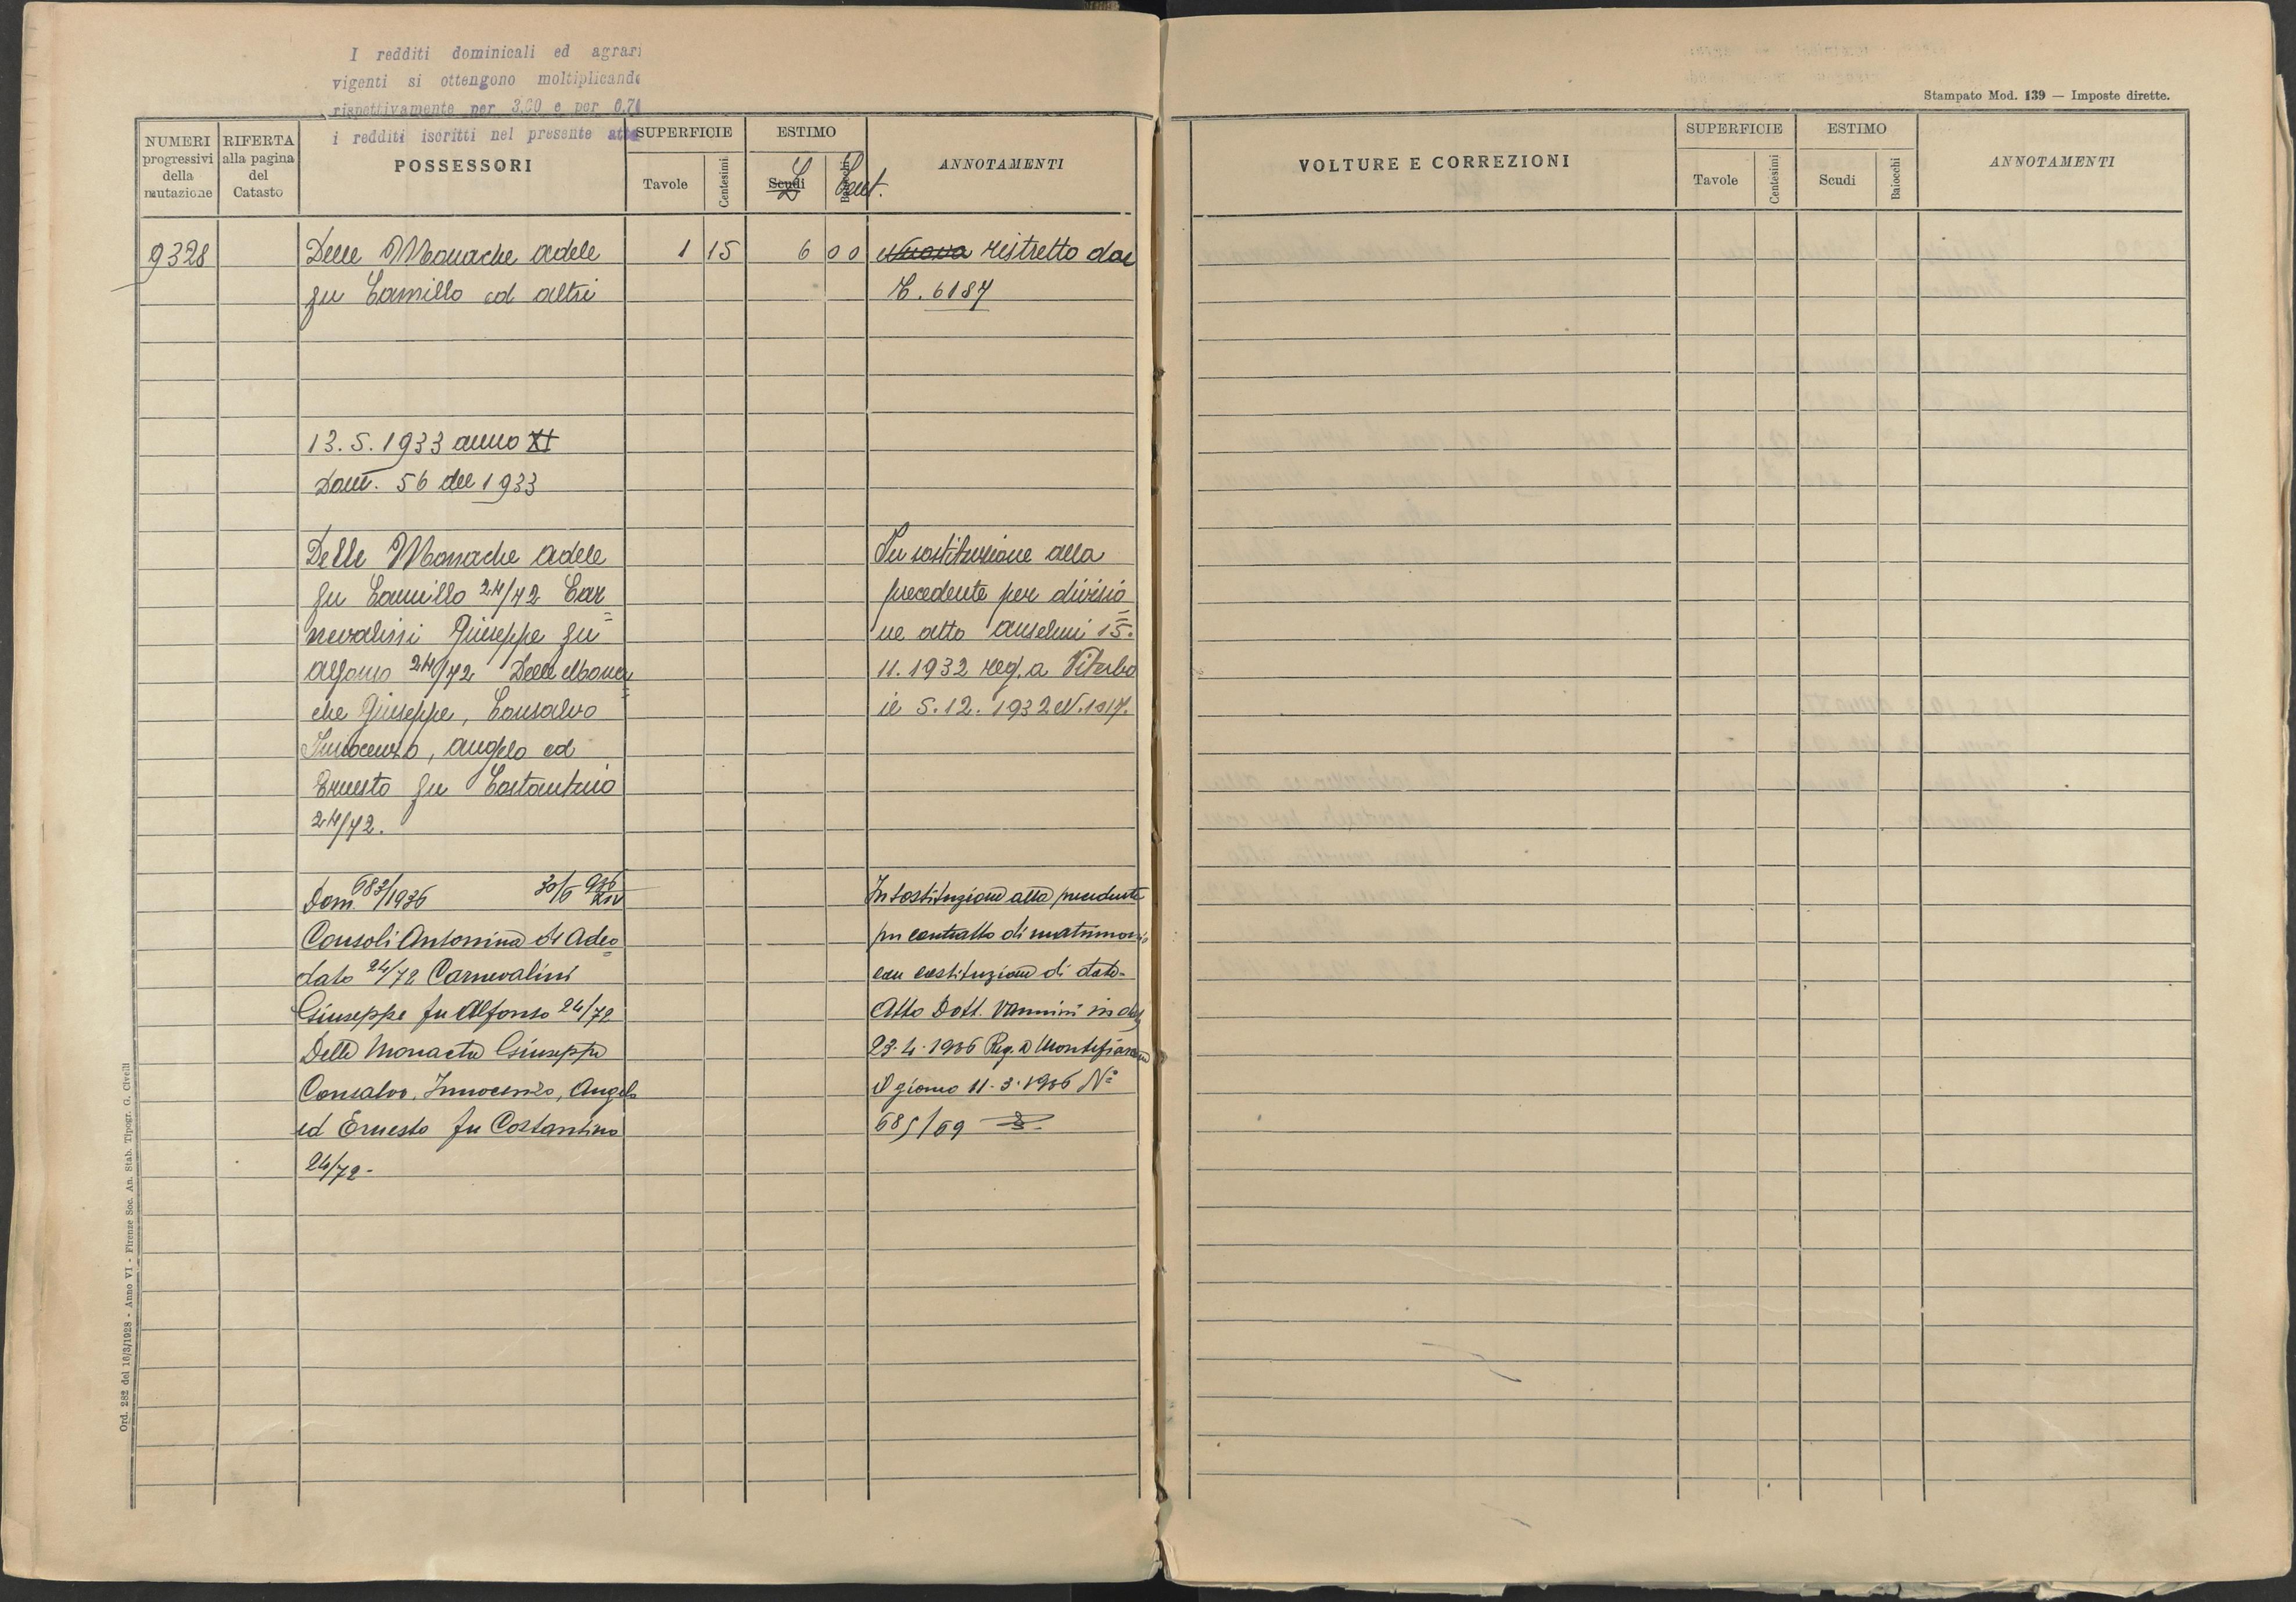 I redditi dominicali ed agrari
vigenti si ottengono moltiplicando
rispettivamente per 3,00 e per 0,70
i redditi iscritti nel presente atto
NUMERI
progressivi
della
mutazione
RIFERTA
alla pagina
del
Catasto
POSSESSORI
SUPERFICIE
Tavole
Centesimi
ESTIMO
Scudi
L
Cent.
ANNOTAMENTI
9328
Delle Monache Adele 1 15 6 00 Nuova ristretto dal
fu Camillo ed altri
C. 6187
13.5.1933 anno XI
Dom. 56 del 1933
Delle Monache Adele
fu Camillo 24/72 Car=
nevalini Giuseppe fu
Alfonso 24/72 Delle Mona=
che Giuseppe, Consalvo
Innocenzo, Angelo ed
Ernesto fu Costantino
24/72.
In sostituzione alla
precedente per divisio=
ne atto Anselmi 15.
11.1932 reg. a Viterbo
il 5.12.1932 N. 1017.
Dom. 683/1936 30/6 936 XIV
Consoli Antonina di Adeo=
dato 24/72 Carnevalini
Giuseppe fu Alfonso 24/72
Delle Monache Giuseppe
Consalvo, Innocenzo, Angelo
ed Ernesto fu Costantino
24/72-
In sostituzione alla precedente
per contratto di matrimonio
con costituzione di dote-
Atto Dott. Vannini in data
23.4.1936 Reg. a Montefiascone
il giorno 11-3-1936 N°
685/69
Ord. 282 del 16/3/1928 - Anno VI - Firenze Soc. An. Stab. Tipogr. G. Civelli
Stampato Mod. 139 — Imposte dirette.
VOLTURE E CORREZIONI
SUPERFICIE
Tavole
Centesimi
ESTIMO
Scudi
Baiocchi
ANNOTAMENTI